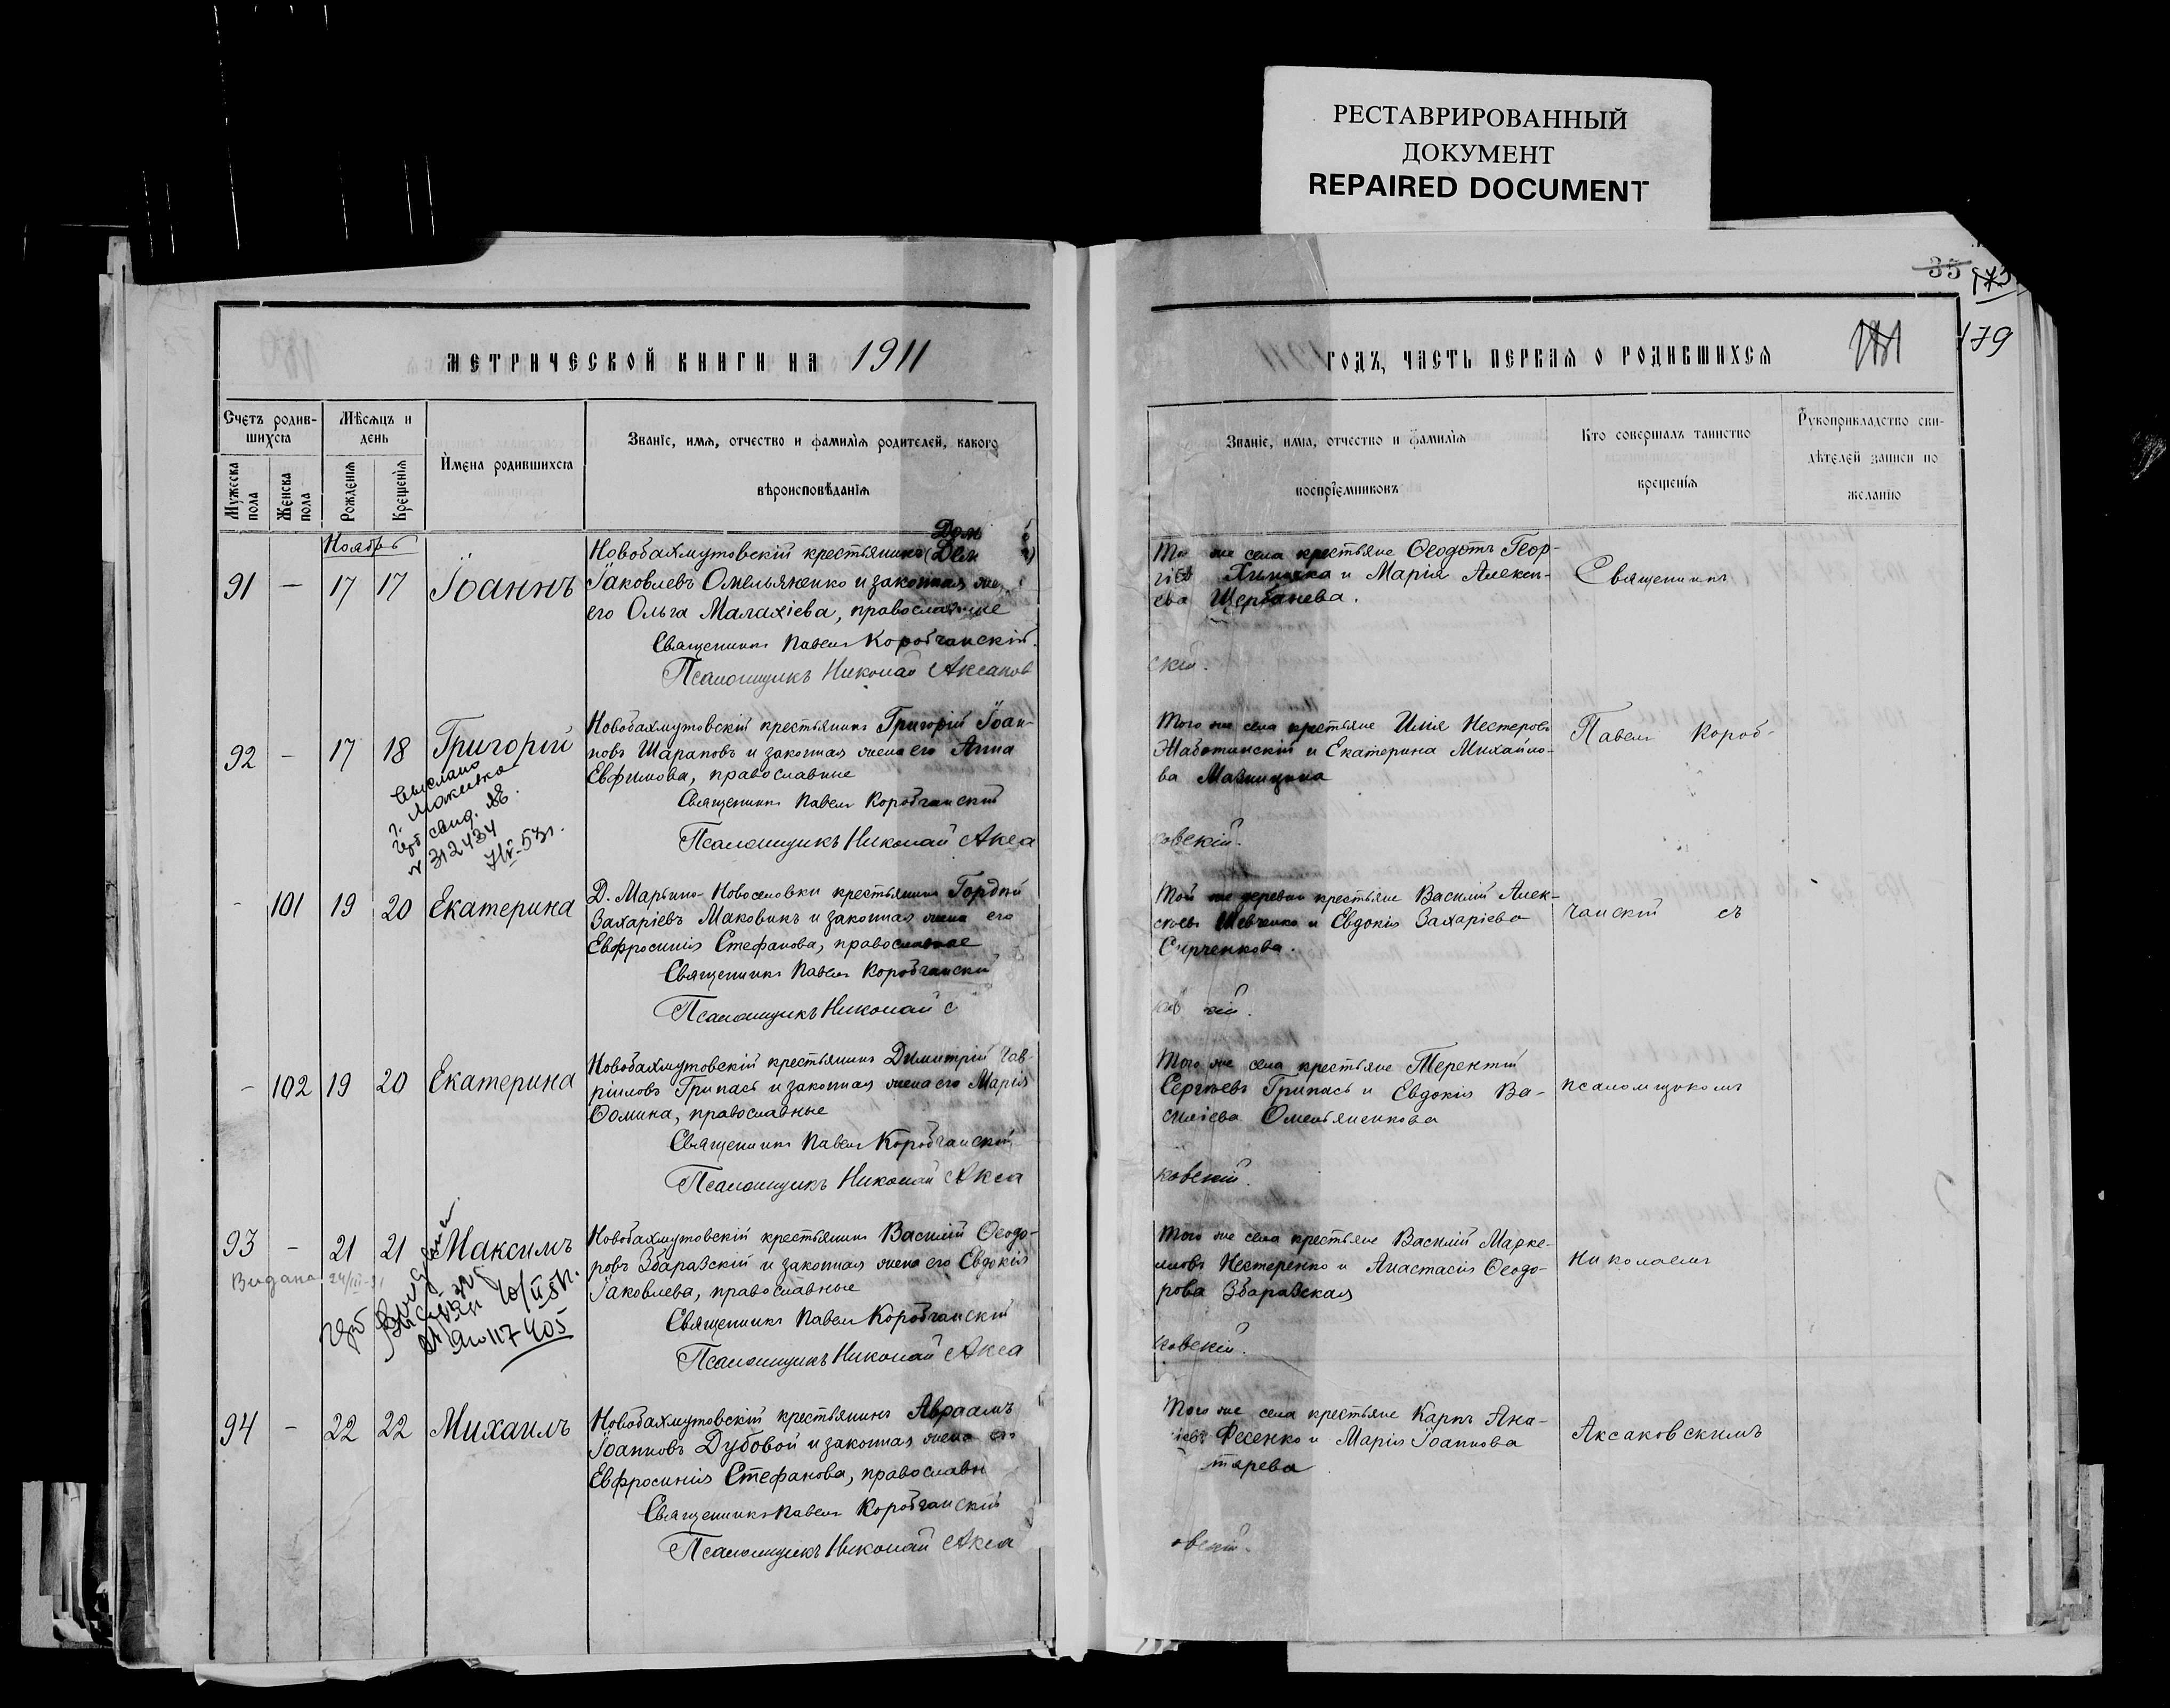 РЕСТАВРИРОВАННЫЙ
ДОКУМЕНТ
REPAIRED DOCUMENT
35
179
МЕТРИЧЕСКОЙ КНИГИ НА 1911
ГОДЪ, ЧАСТЬ ПЕРВАЯ О РОДИВШИХСЯ
Счетъ родив-
шихся
Мужеска
пола
Женска
пола
Мѣсяцъ и
день
Рожденія
Крещенія
Имена родившихся
Званіе, имя, отчество и фамилія родителей, какого
вѣроисповѣданія
Званіе, имя, отчество и фамилія
воспріемниковъ
Кто совершалъ таинство
крещенія
Рукоприкладство сви-
дѣтелей записи по
желанію
Ноябрь
91 — 17 17 Іоаннъ
Новобахмутовскій крестьянинъ
Іаковлевъ Омельяненко и законная
его Ольга Малахіева, православные
Священникъ Павелъ Коробчанскій.
Псаломщикъ Николай Аксаков
скій.
же села крестьяне Ѳеодотъ Геор-
и Марія Алексѣ-
ева Щербанева.
Священникъ
92 — 17 18 Григорій
выслано
г. Макеевка
свид.
№ 312434
7/V-53г.
Новобахмутовскій крестьянинъ Григорій Іоан-
новъ Шараповъ и законная жена его Анна
Евфимова, православные
Священникъ Павелъ Коробчанскій
Псаломщикъ Николай Акса
ковскій.
Того же села крестьяне Илія Нестеровъ
Жаботинскій и Екатерина Михайло-
ва
Павелъ Короб-
- 101 19 20 Екатерина
Д. Марьино-Новоселовки крестьянинъ Гордій
Захаріевъ Маковикъ и законная жена его
Евфросинія Стефанова, православные
Священникъ Павелъ Коробчанскій
Псаломщикъ Николай
Той же деревни крестьяне Василій Алек-
сѣевъ Шевченко и Евдокія Захаріева
Сирченкова.
чанскій съ
- 102 19 20 Екатерина
Новобахмутовскій крестьянинъ Димитрій Гав-
ріиловъ Грипась и законная жена его Марія
Ѳомина, православные
Священникъ Павелъ Коробчанскій
Псаломщикъ Николай Акса
ковскій.
Того же села крестьяне Терентій
Сергѣевъ Грипась и Евдокія Ва-
силіева Омельяненкова
псаломщикомъ
93 — 21 21 Максимъ
Видана 24/III-31
10/II 58г.
117405
Новобахмутовскій крестьянинъ Василій Ѳеодо-
ровъ Збаразскій и законная жена его Евдокія
Іаковлева, православные
Священникъ Павелъ Коробчанскій
Псаломщикъ Николай Акса
ковскій.
Того же села крестьяне Василій Марке-
лловъ Нестеренко и Анастасія Ѳеодо-
рова Збаразская
Николаемъ
94 — 22 22 Михаилъ
Новобахмутовскій крестьянинъ Авраамъ
Іоанновъ Дубовой и законная жена его
Евфросинія Стефанова, православн
Священникъ Павелъ Коробчанскій
Псаломщикъ Николай Акса
овскій.
Того же села крестьяне Карпъ Ана-
Фесенко и Марія Іоаннова
тярева
Аксаковскимъ